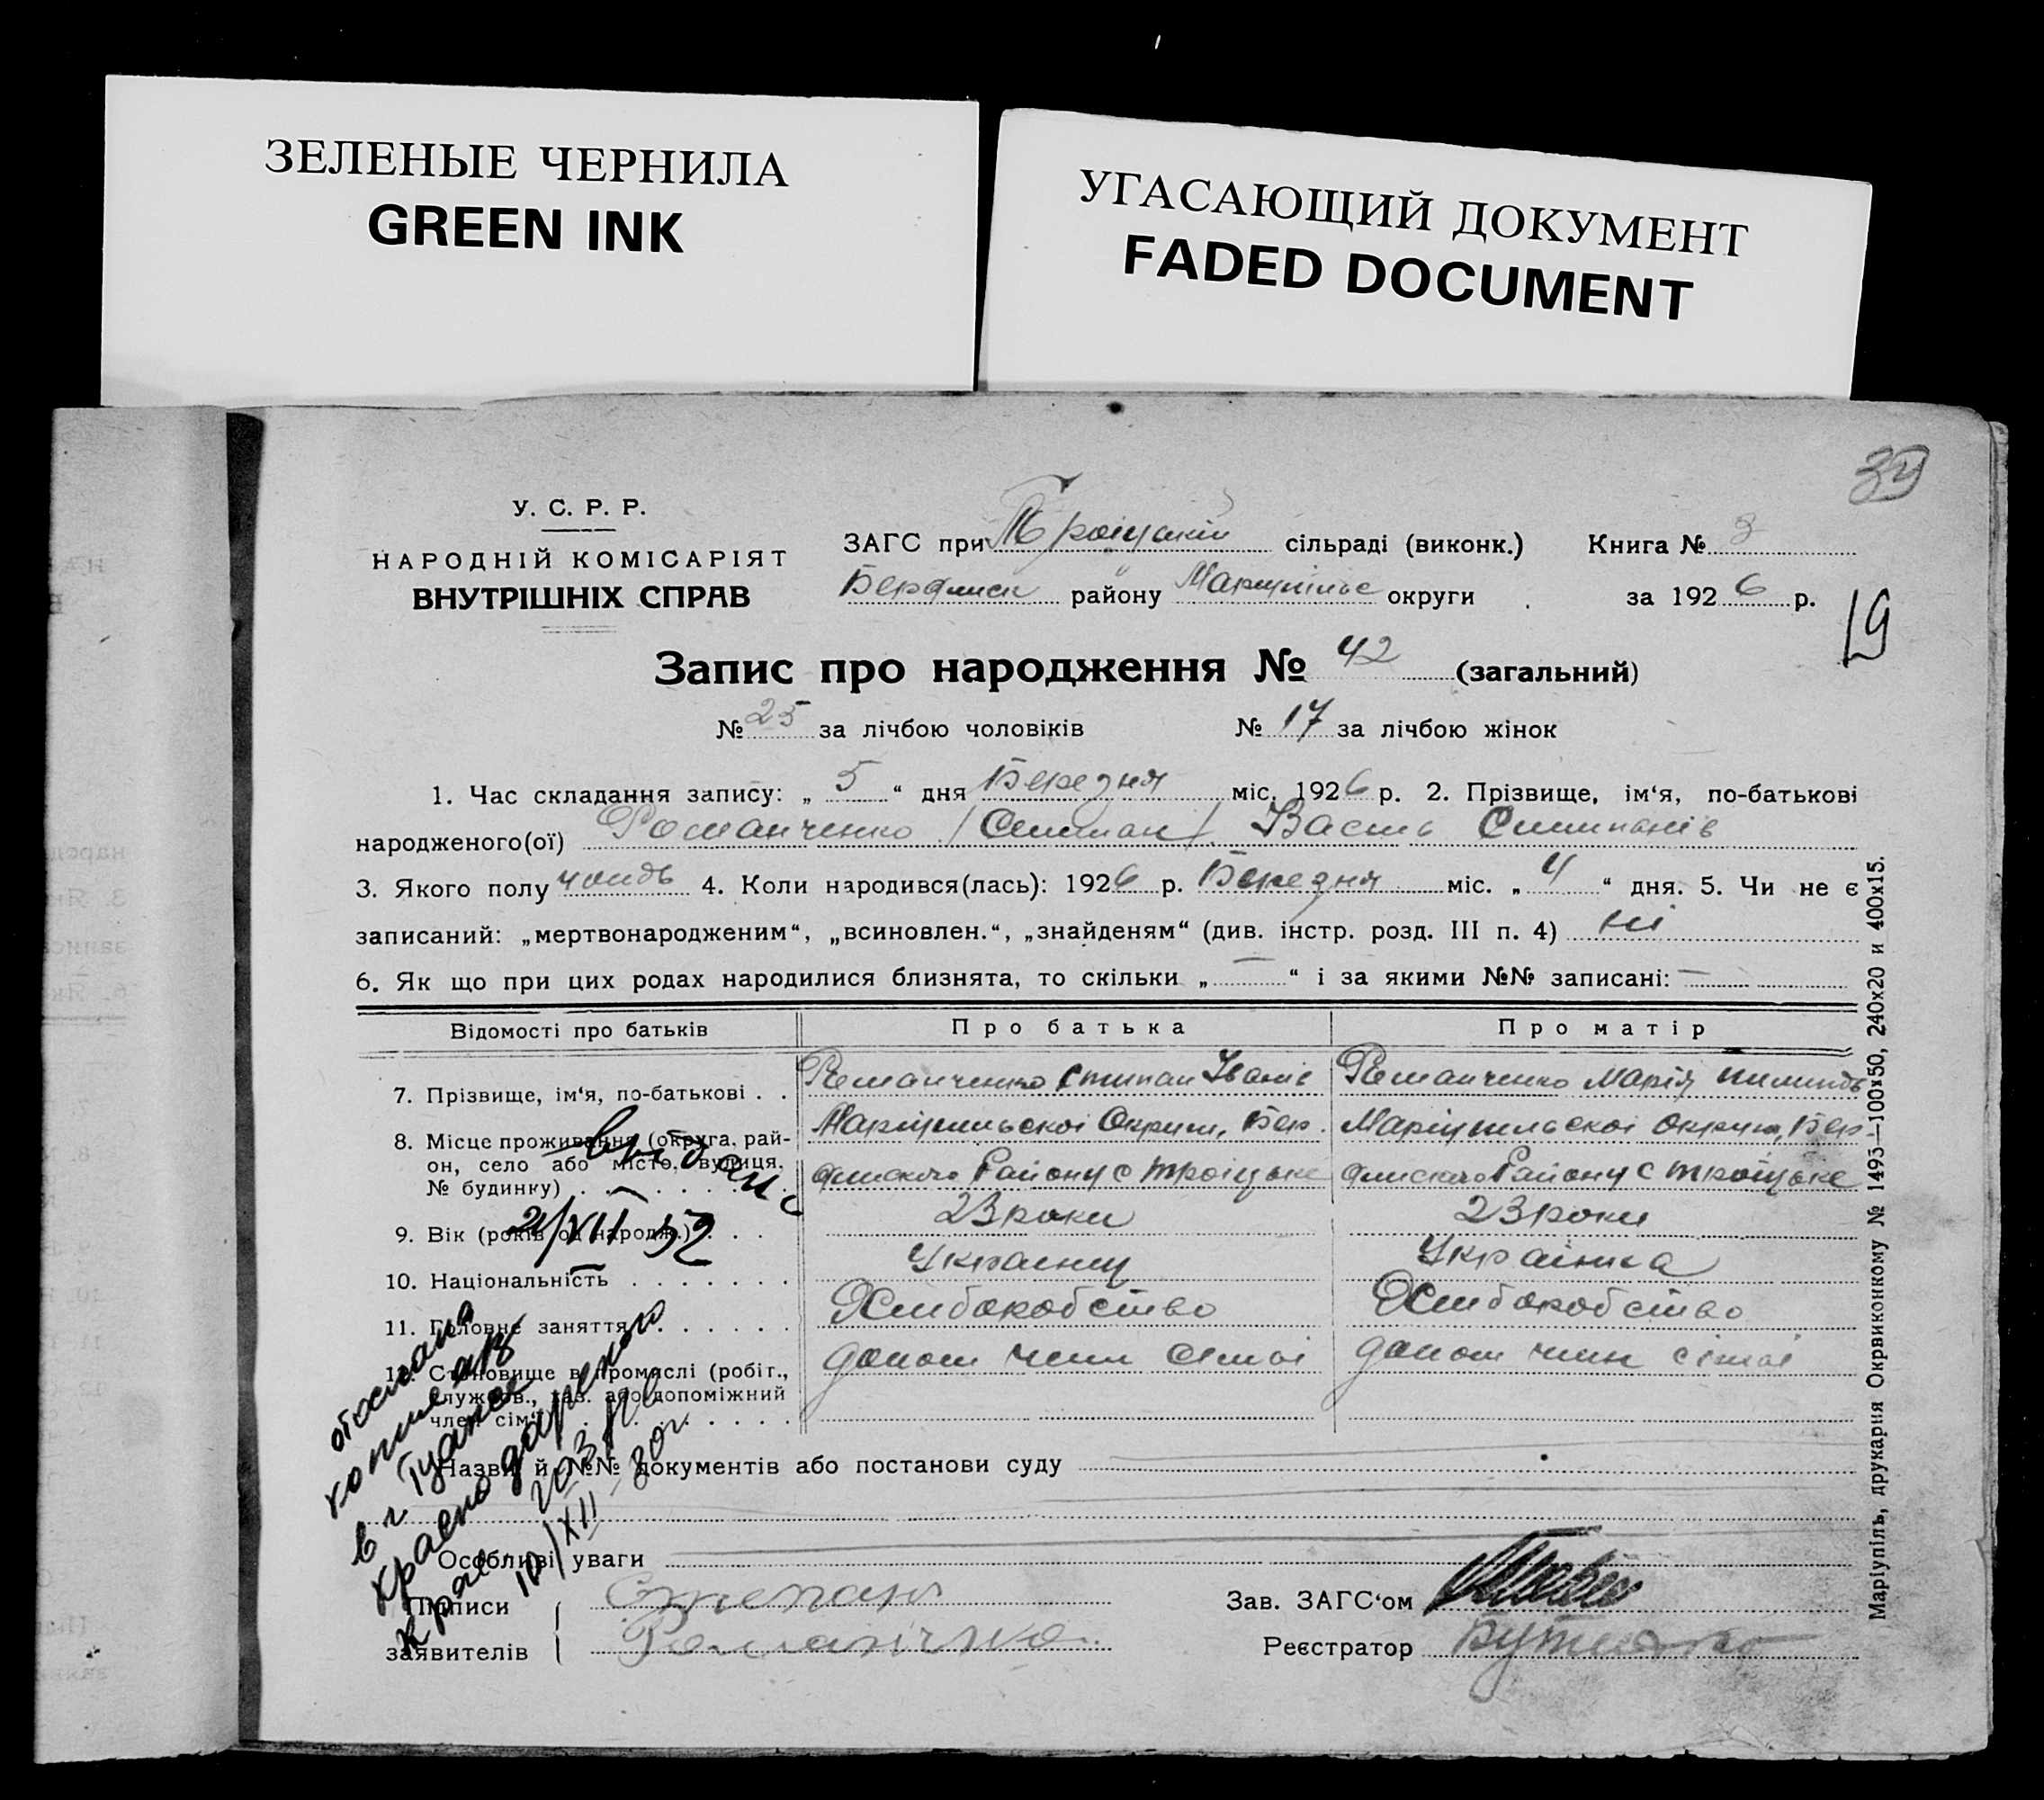 ЗЕЛЕНЫЕ ЧЕРНИЛА
GREEN INK
УГАСАЮЩИЙ ДОКУМЕНТ
FADED DOCUMENT
39
У. С. Р. Р.
НАРОДНІЙ КОМІСАРІЯТ
ВНУТРІШНІХ СПРАВ
ЗАГС при Троіцькій сільраді (виконк.) Книга № 3
Бердянськ району Маріупільс округи за 1926 р.
19
Запис про народження № 42 (загальний)
№ 25 за лічбою чоловіків № 17 за лічбою жінок
1. Час складання запису: „ 5 “ дня Березня міс. 1926 р. 2. Прізвище, ім‘я, по-батькові
народженого(ої) Романченко /Степан/ Василь
3. Якого полу 4. Коли народився(лась): 1926 р. Березня міс. „ 4 “ дня. 5. Чи не є
записаний: „мертвонародженим“, „всиновлен.“, „знайденям“ (див. інстр. розд. III п. 4) ні
6. Як що при цих родах народилися близнята, то скільки „ — “ і за якими №№ записані: —
Відомості про батьків Про батька Про матір
7. Прізвище, ім‘я, по-батькові . . Романченко Степан Іванів Романченко Марія
8. Місце проживання (округа, рай-он, село або місто, вулиця, № будинку) . Маріупільскоі Округи, Бер Маріупільскоі Округи, Бер
Району с Троіцьке Району с Троіцьке
9. Вік (років од народж.) . . . 23 роки 23 роки
10. Національність . . . . . . . Украинец Украінка
11. Головне заняття . . . . . . Хліборобство Хліборобство
12. Становище в промислі (робіт., службов., хаз. або допоміжний член сім‘ї) допом член сімі допом член сімі
21/XII 52
отослана
копия
в г. Туапсе
Краснодарского
края
10/XII 80г.
Назви й №№ документів або постанови суду
Особливі уваги
Підписи заявителів Степан
Романічко
Зав. ЗАГС‘ом
Реєстратор
Маріупіль, друкарня Окрвиконкому № 1493—100х50, 240х20 и 400х15.